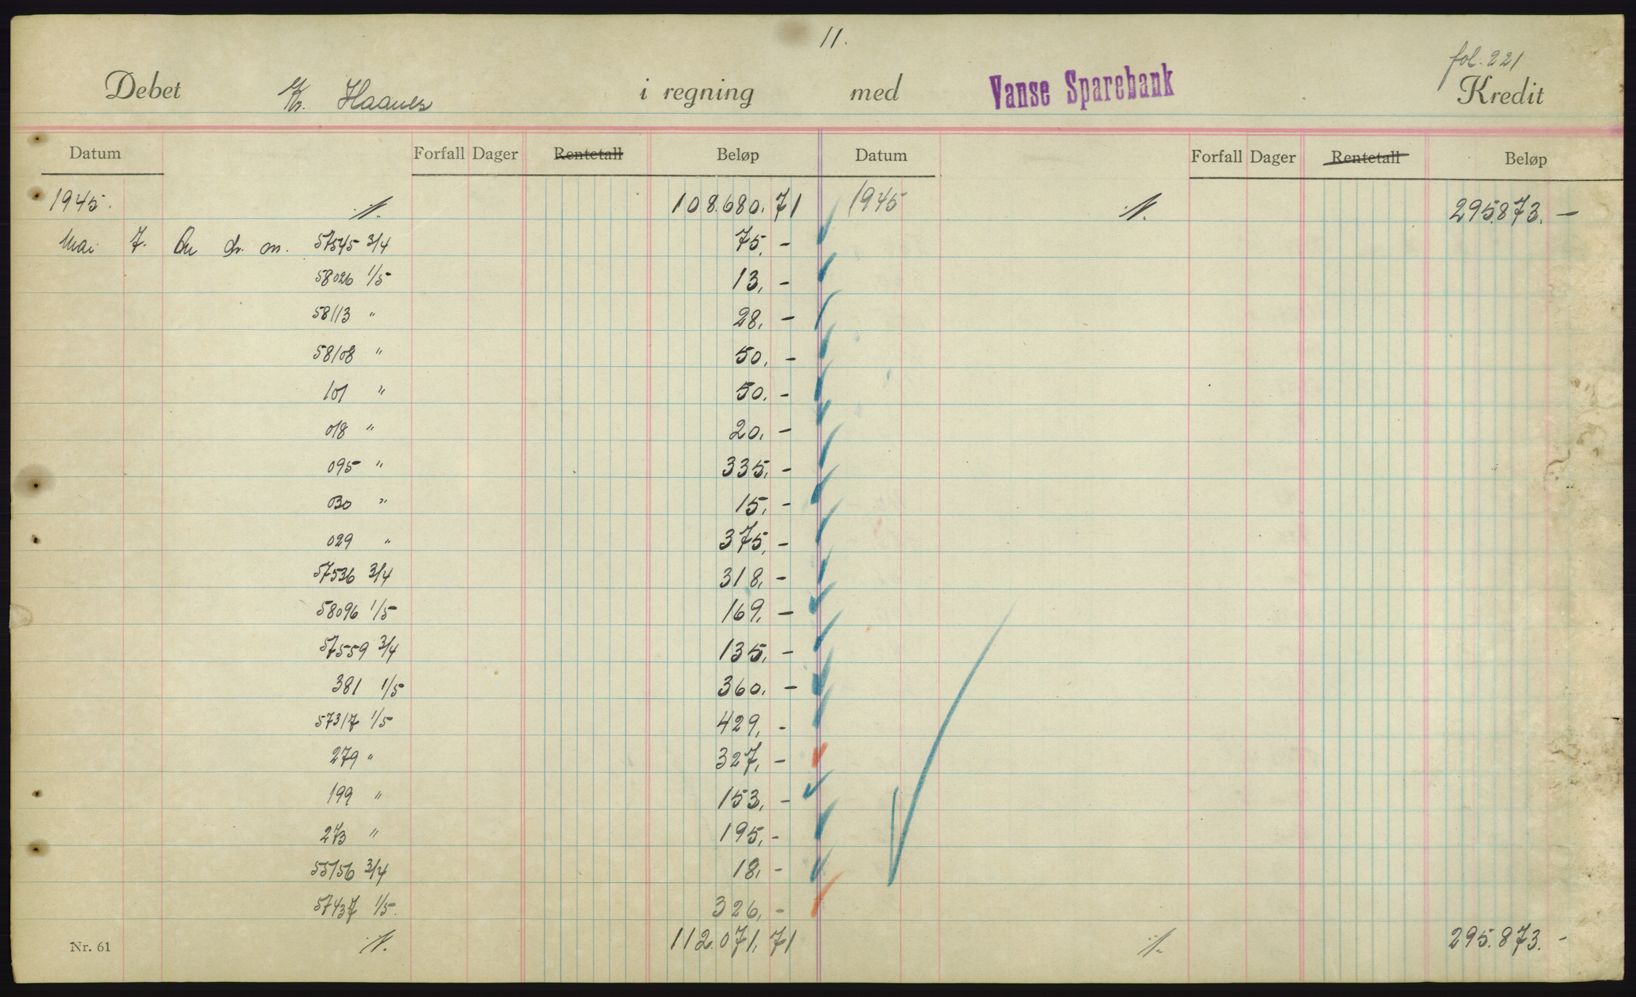 11.
fol. 221
Debet Kr. Haanes i regning med Vanse Sparebank Kredit
Datum Forfall Dager Rentetall Beløp Datum Forfall Dager Rentetall Beløp
1945. 108.680.71 1945 295.873.—
Mai 7. 57545 3/4 75,-
58026 1/5 13,-
58113 " 28,-
58108 " 50,-
101 " 50,-
018 " 20,-
095 " 335,-
030 " 15,-
029 " 375,-
57536 3/4 318,-
58096 1/5 169,-
57559 3/4 135,-
381 1/5 360,-
57317 1/5 429,-
279 " 327,-
199 " 153,-
273 " 195,-
55756 3/4 18,-
57437 1/5. 326,-
Nr. 61 112.071.71 295.873.-